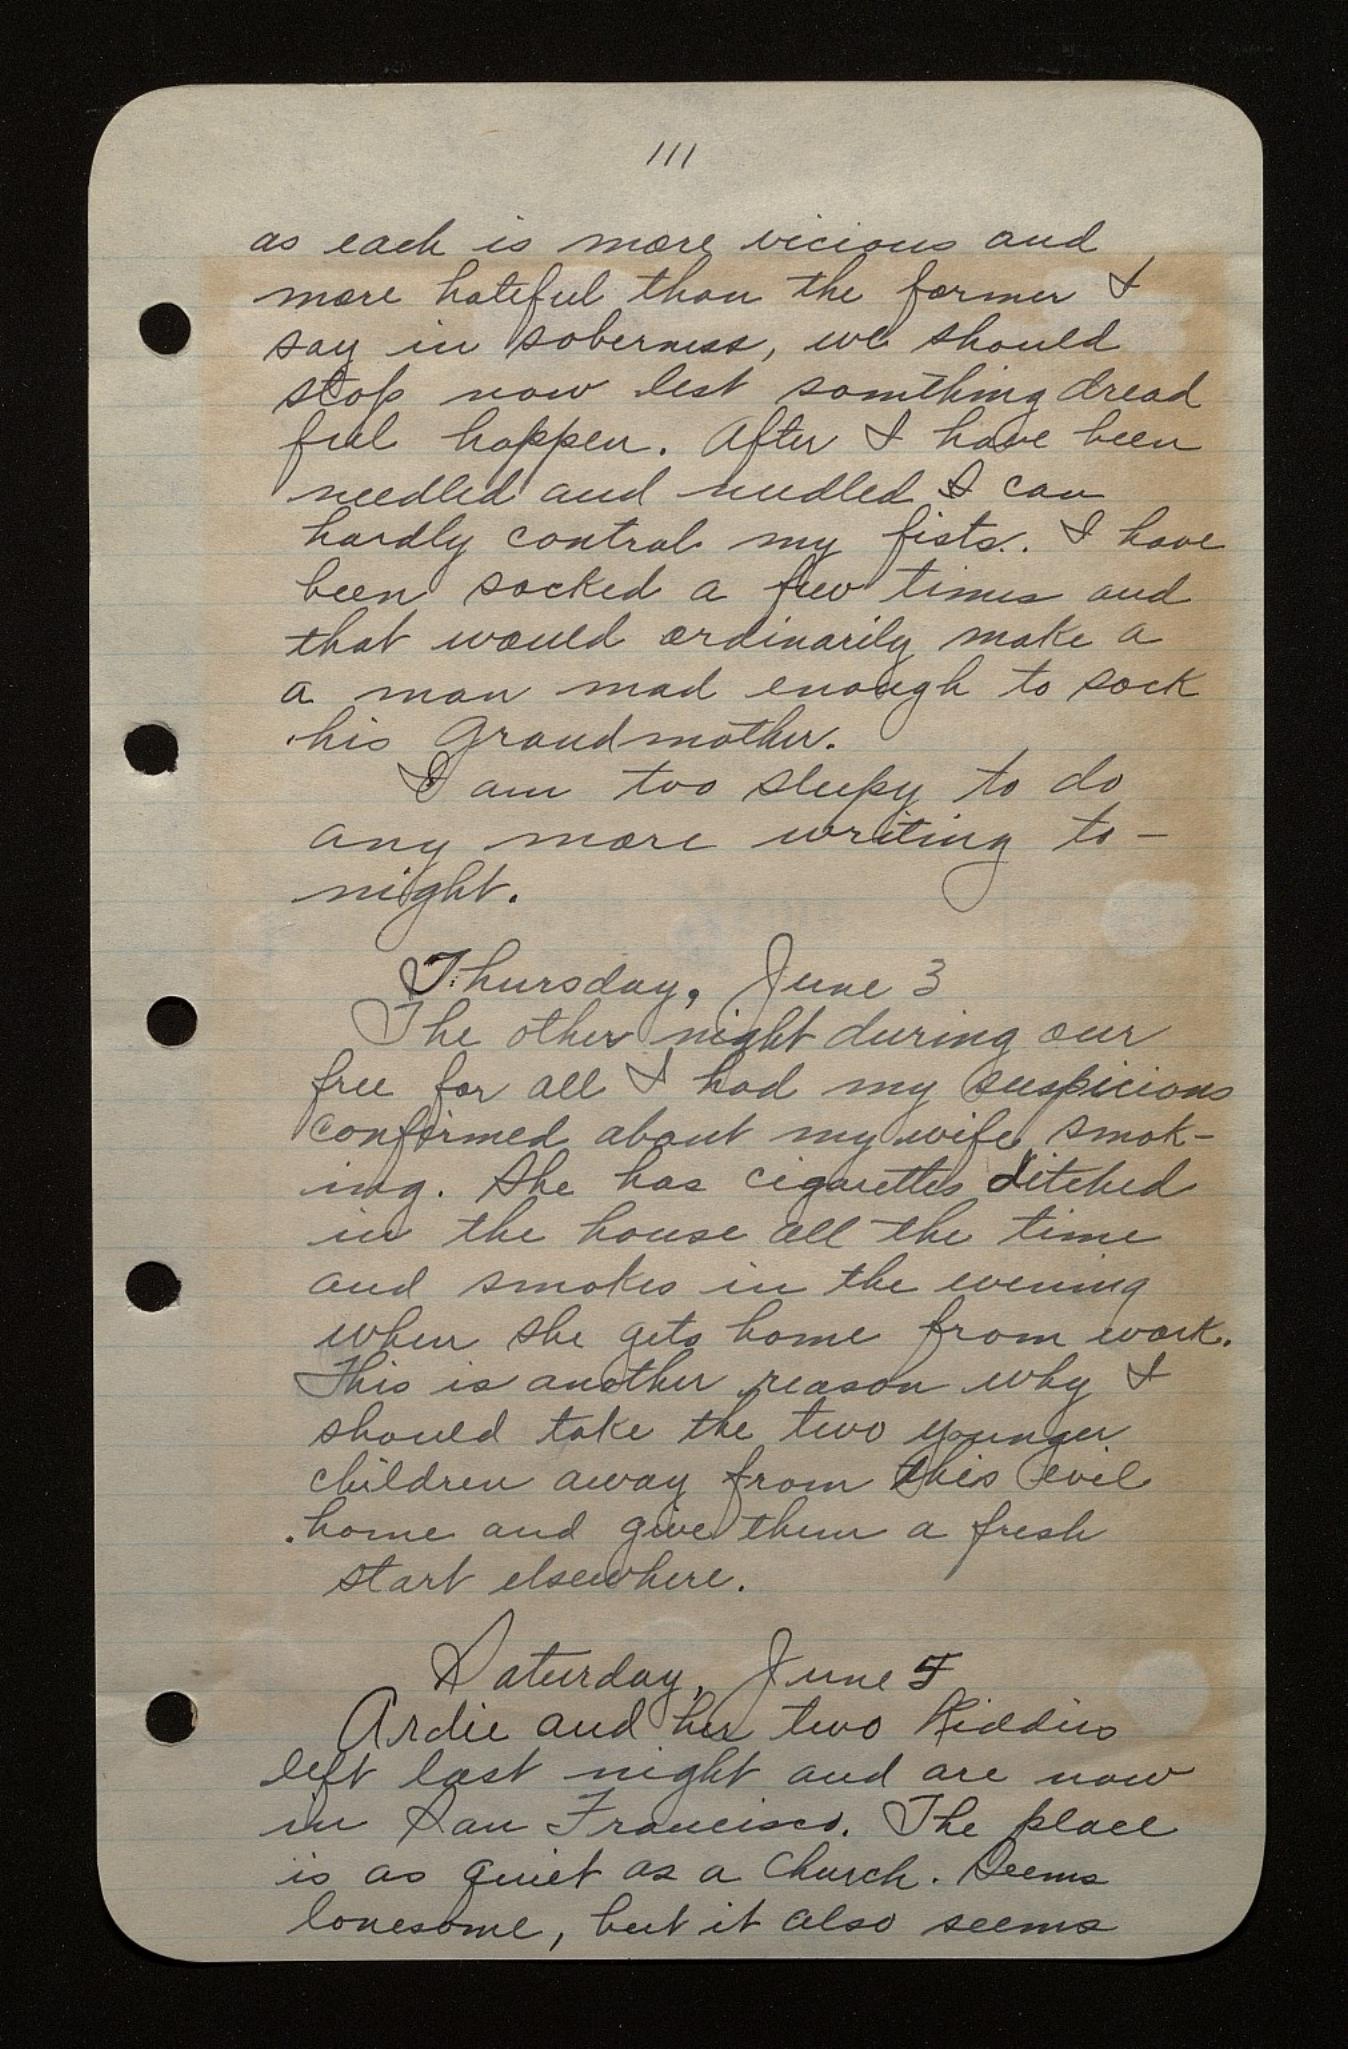 111
as each is more vicious and
more hateful than the former I
say in soberness, we should
stop now lest something dread
ful happen. After I have been
needled and needled I can
hardly control my fists. I have
been socked a few times and
that would ordinarily make a
a man mad enough to sock
his Grandmother.
I am too sleepy to do
any more writing to-
night.
Thursday, June 3
The other night during our
free for all I had my suspicions
confirmed about my wife smok-
ing. She has cigarettes ditched
in the house all the time
and smokes in the evening
when she gets home from work.
This is another reason why I
should take the two younger
children away from this evil
home and give them a fresh
start elsewhere.
Saturday, June 5
Ardie and her two Kiddies
left last night and are now
in San Francisco. The place
is as quiet as a Church. Seems
lonesome, but it also seems